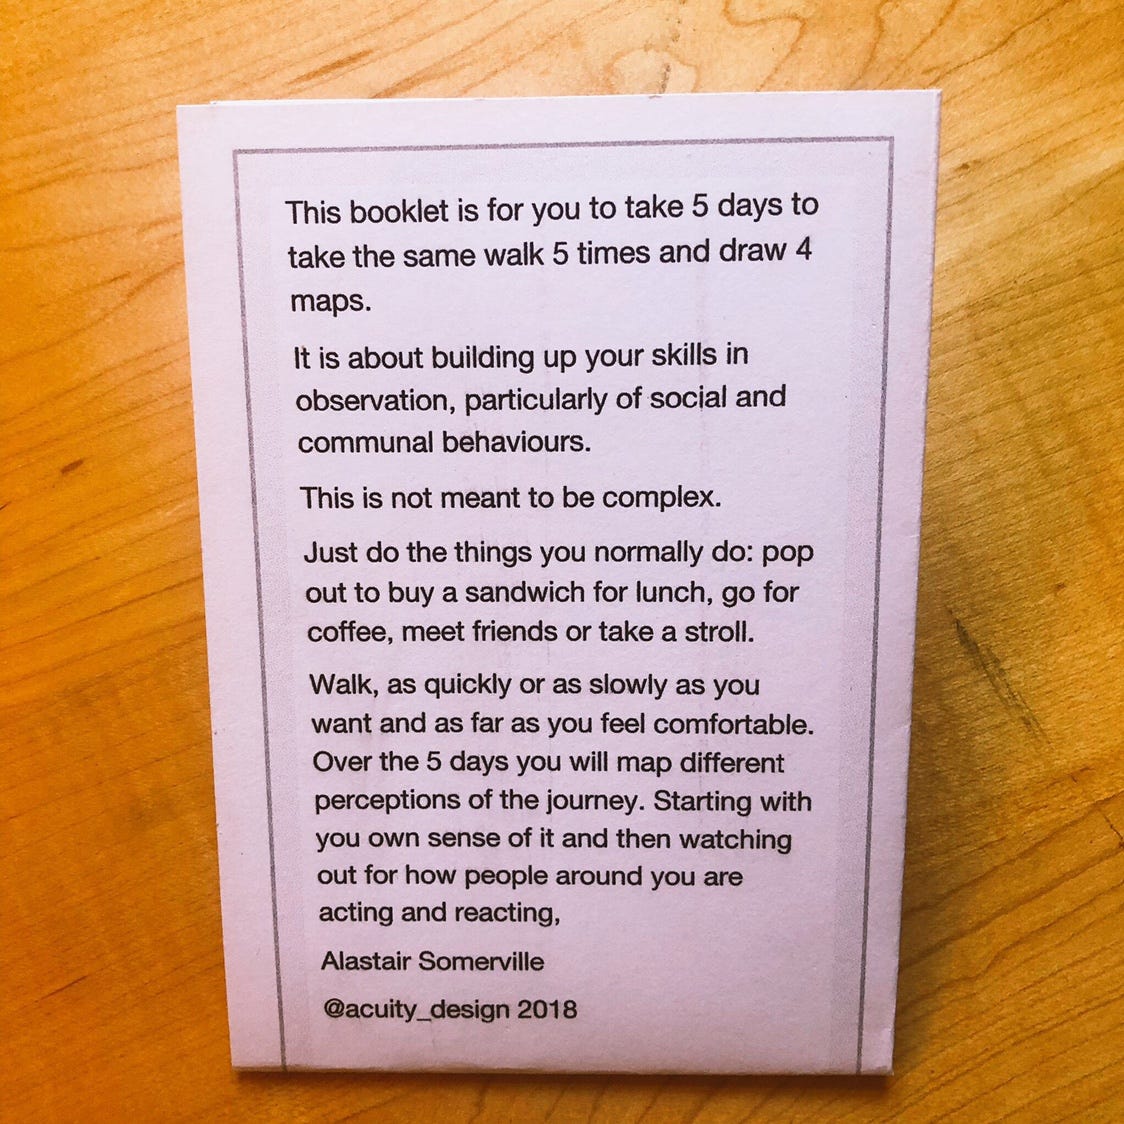 This booklet is for you to take 5 days to
take the same walk 5 times and draw 4
maps.
It is about building up your skills in
observation, particularly of social and
communal behaviours.
This is not meant to be complex.
Just do the things you normally do: pop
out to buy a sandwich for lunch, go for
coffee, meet friends or take a stroll.
Walk, as quickly or as slowly as you
want and as far as you feel comfortable.
Over the 5 days you will map different
perceptions of the journey. Starting with
you own sense of it and then watching
out for how people around you are
acting and reacting,
Alastair Somerville
@acuity_design 2018